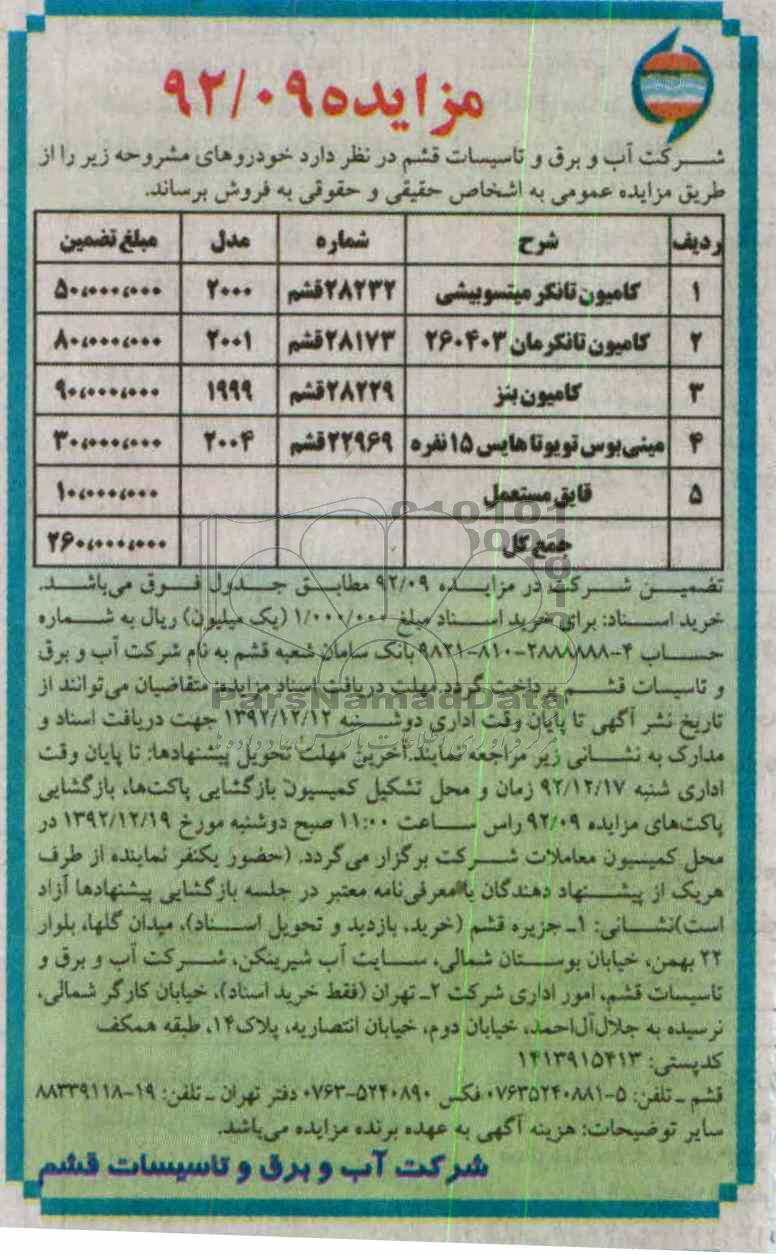 مزایده ۹۲/۰۹
شرکت آب و برق و تاسیسات قشم در نظر دارد خودروهای مشروحه زیر را از
طریق مزایده عمومی به اشخاص حقیقی و حقوقی به فروش برساند.
ردیف شرح شماره مدل مبلغ تضمین
۱ کامیون تانکر میتسوبیشی ۲۸۲۳۲قشم ۲۰۰۰ ۵۰،۰۰۰،۰۰۰
۲ کامیون تانکر مان ۲۶۰۴۰۳ ۲۸۱۷۳قشم ۲۰۰۱ ۸۰،۰۰۰،۰۰۰
۳ کامیون بنز ۲۸۲۲۹قشم ۱۹۹۹ ۹۰،۰۰۰،۰۰۰
۴ مینی بوس تویوتا هایس ۱۵ نفره ۲۲۹۶۹قشم ۲۰۰۴ ۳۰،۰۰۰،۰۰۰
۵ قایق مستعمل ۱۰،۰۰۰،۰۰۰
جمع کل ۲۶۰،۰۰۰،۰۰۰
تضمین شرکت در مزایده ۹۲/۰۹ مطابق جدول فوق می‌باشد.
خرید اسناد: برای خرید اسناد مبلغ ۱/۰۰۰/۰۰۰ (یک میلیون) ریال به شماره
حساب ۴-۲۸۸۸۸۸۸-۸۱۰-۹۸۲۱ بانک سامان شعبه قشم به نام شرکت آب و برق
و تاسیسات قشم پرداخت گردد.مهلت دریافت اسناد مزایده: متقاضیان می‌توانند از
ParsNamadData
تاریخ نشر آگهی تا پایان وقت اداری دوشنبه ۱۳۹۲/۱۲/۱۲ جهت دریافت اسناد و
مدارک به نشانی زیر مراجعه نمایند.آخرین مهلت تحویل پیشنهادها: تا پایان وقت
اداری شنبه ۹۲/۱۲/۱۷ زمان و محل تشکیل کمیسیون بازگشایی پاکت‌ها، بازگشایی
پاکت‌های مزایده ۹۲/۰۹ راس ساعت ۱۱:۰۰ صبح دوشنبه مورخ ۱۳۹۲/۱۲/۱۹ در
محل کمیسیون معاملات شرکت برگزار می‌گردد. (حضور یکنفر نماینده از طرف
هریک از پیشنهاد دهندگان با معرفی‌نامه معتبر در جلسه بازگشایی پیشنهادها آزاد
است)نشانی: ۱ـ جزیره قشم (خرید، بازدید و تحویل اسناد)، میدان گلها، بلوار
۲۲ بهمن، خیابان بوستان شمالی، سایت آب شیرینکن، شرکت آب و برق و
تاسیسات قشم، امور اداری شرکت ۲ـ تهران (فقط خرید اسناد)، خیابان کارگر شمالی،
نرسیده به جلال‌آل‌احمد، خیابان دوم، خیابان انتصاریه، پلاک۱۴، طبقه همکف
کدپستی: ۱۴۱۳۹۱۵۴۱۳
قشم ـ تلفن: ۵-۰۷۶۳۵۲۴۰۸۸۱ فکس ۵۲۴۰۸۹۰-۰۷۶۳ دفتر تهران ـ تلفن: ۱۹-۸۸۳۳۹۱۱۸
سایر توضیحات: هزینه آگهی به عهده برنده مزایده می‌باشد.
شرکت آب و برق و تاسیسات قشم